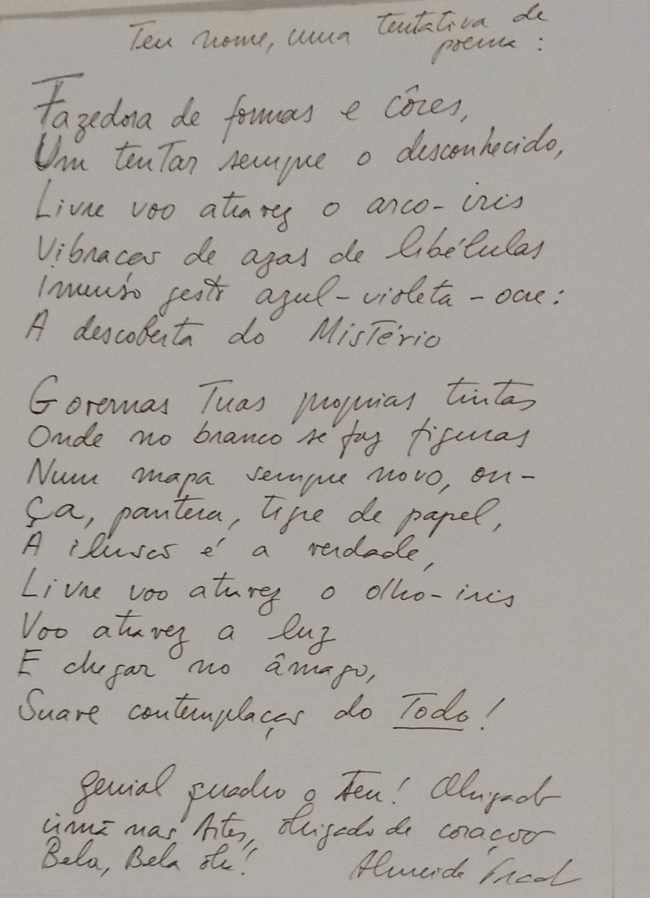 Teu nome, uma tentativa de
poema:
Fazedora de formas e côres,
Um tentar sempre o desconhecido,
Livre voo atravez o arco-iris
Vibracões de azas de libélulas
Imenso gesto azul-violeta-ocre:
A descoberta do Mistério
Governas Tuas proprias tintas
Onde no branco se faz figuras
Num mapa sempre novo, on-
ça, pantera, tigre de papel,
A ilusão é a verdade,
Livre voo atravez o olho-iris
Voo atravez a luz
E chegar no âmago,
Suave contemplação do Todo!
genial quadro o teu! Obrigado
irmã nas Artes, obrigado de coração
Bela, Bela
Almeida Prado